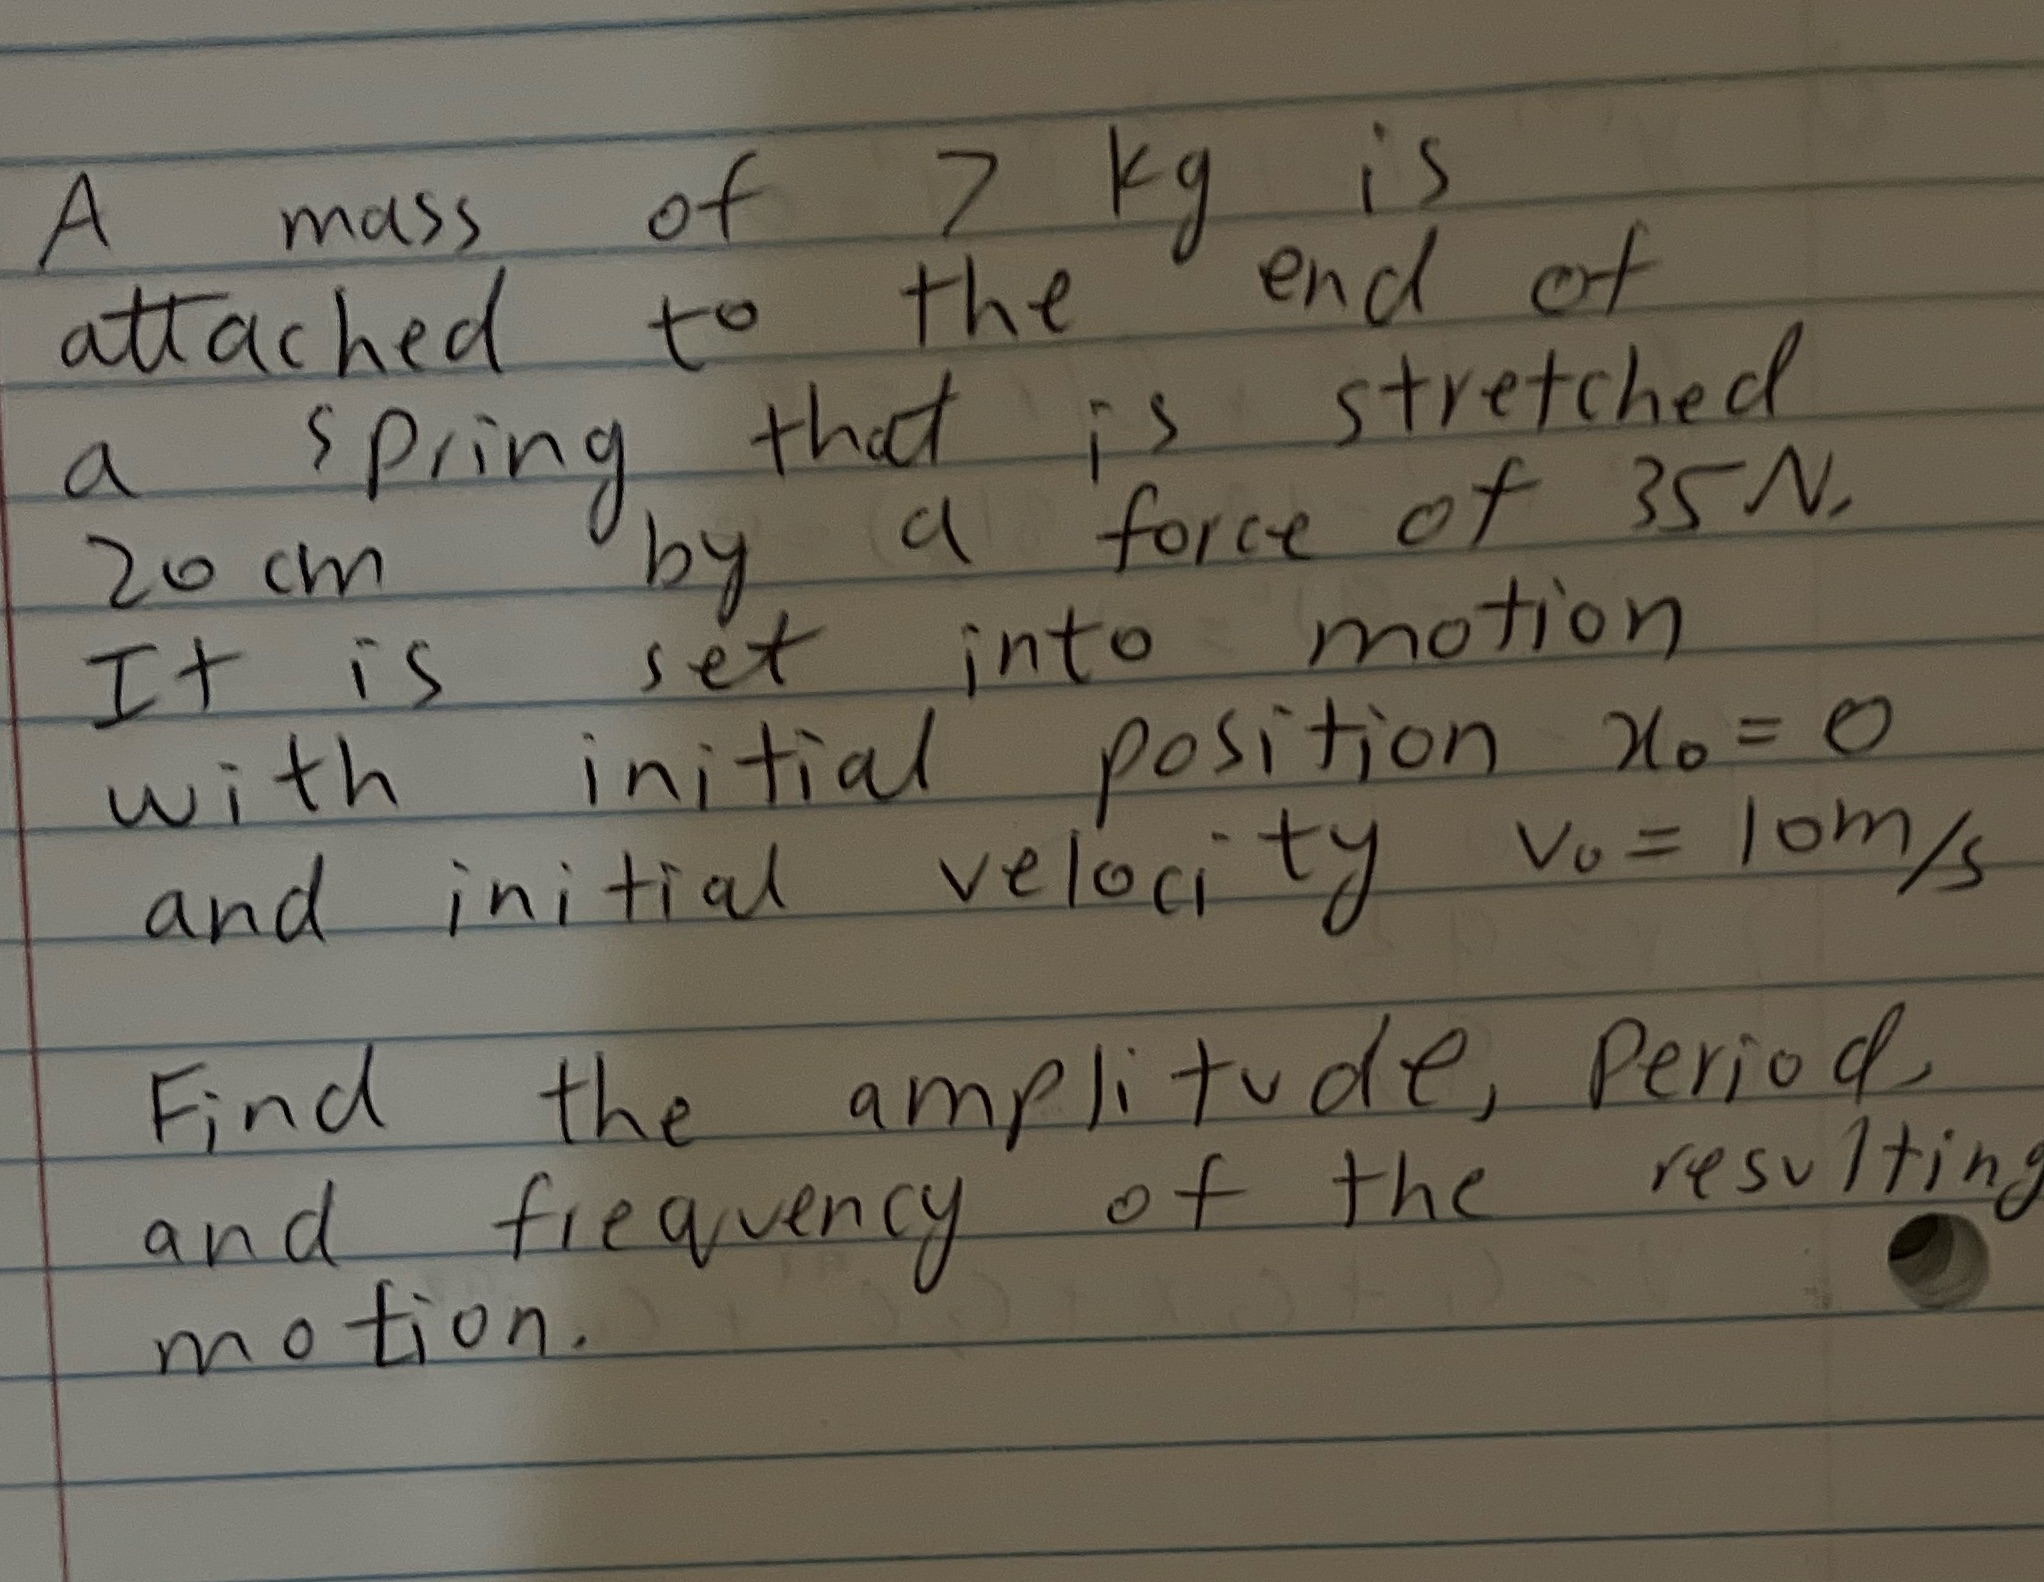 A mass of 7 kg is
attached to the end of
a spring that is stretched
20 cm by a force of 35 N.
It is set into motion
with initial position x₀ = 0
and initial velocity v₀ = 10m/s
Find the amplitude, period,
and frequency of the resulting
motion.